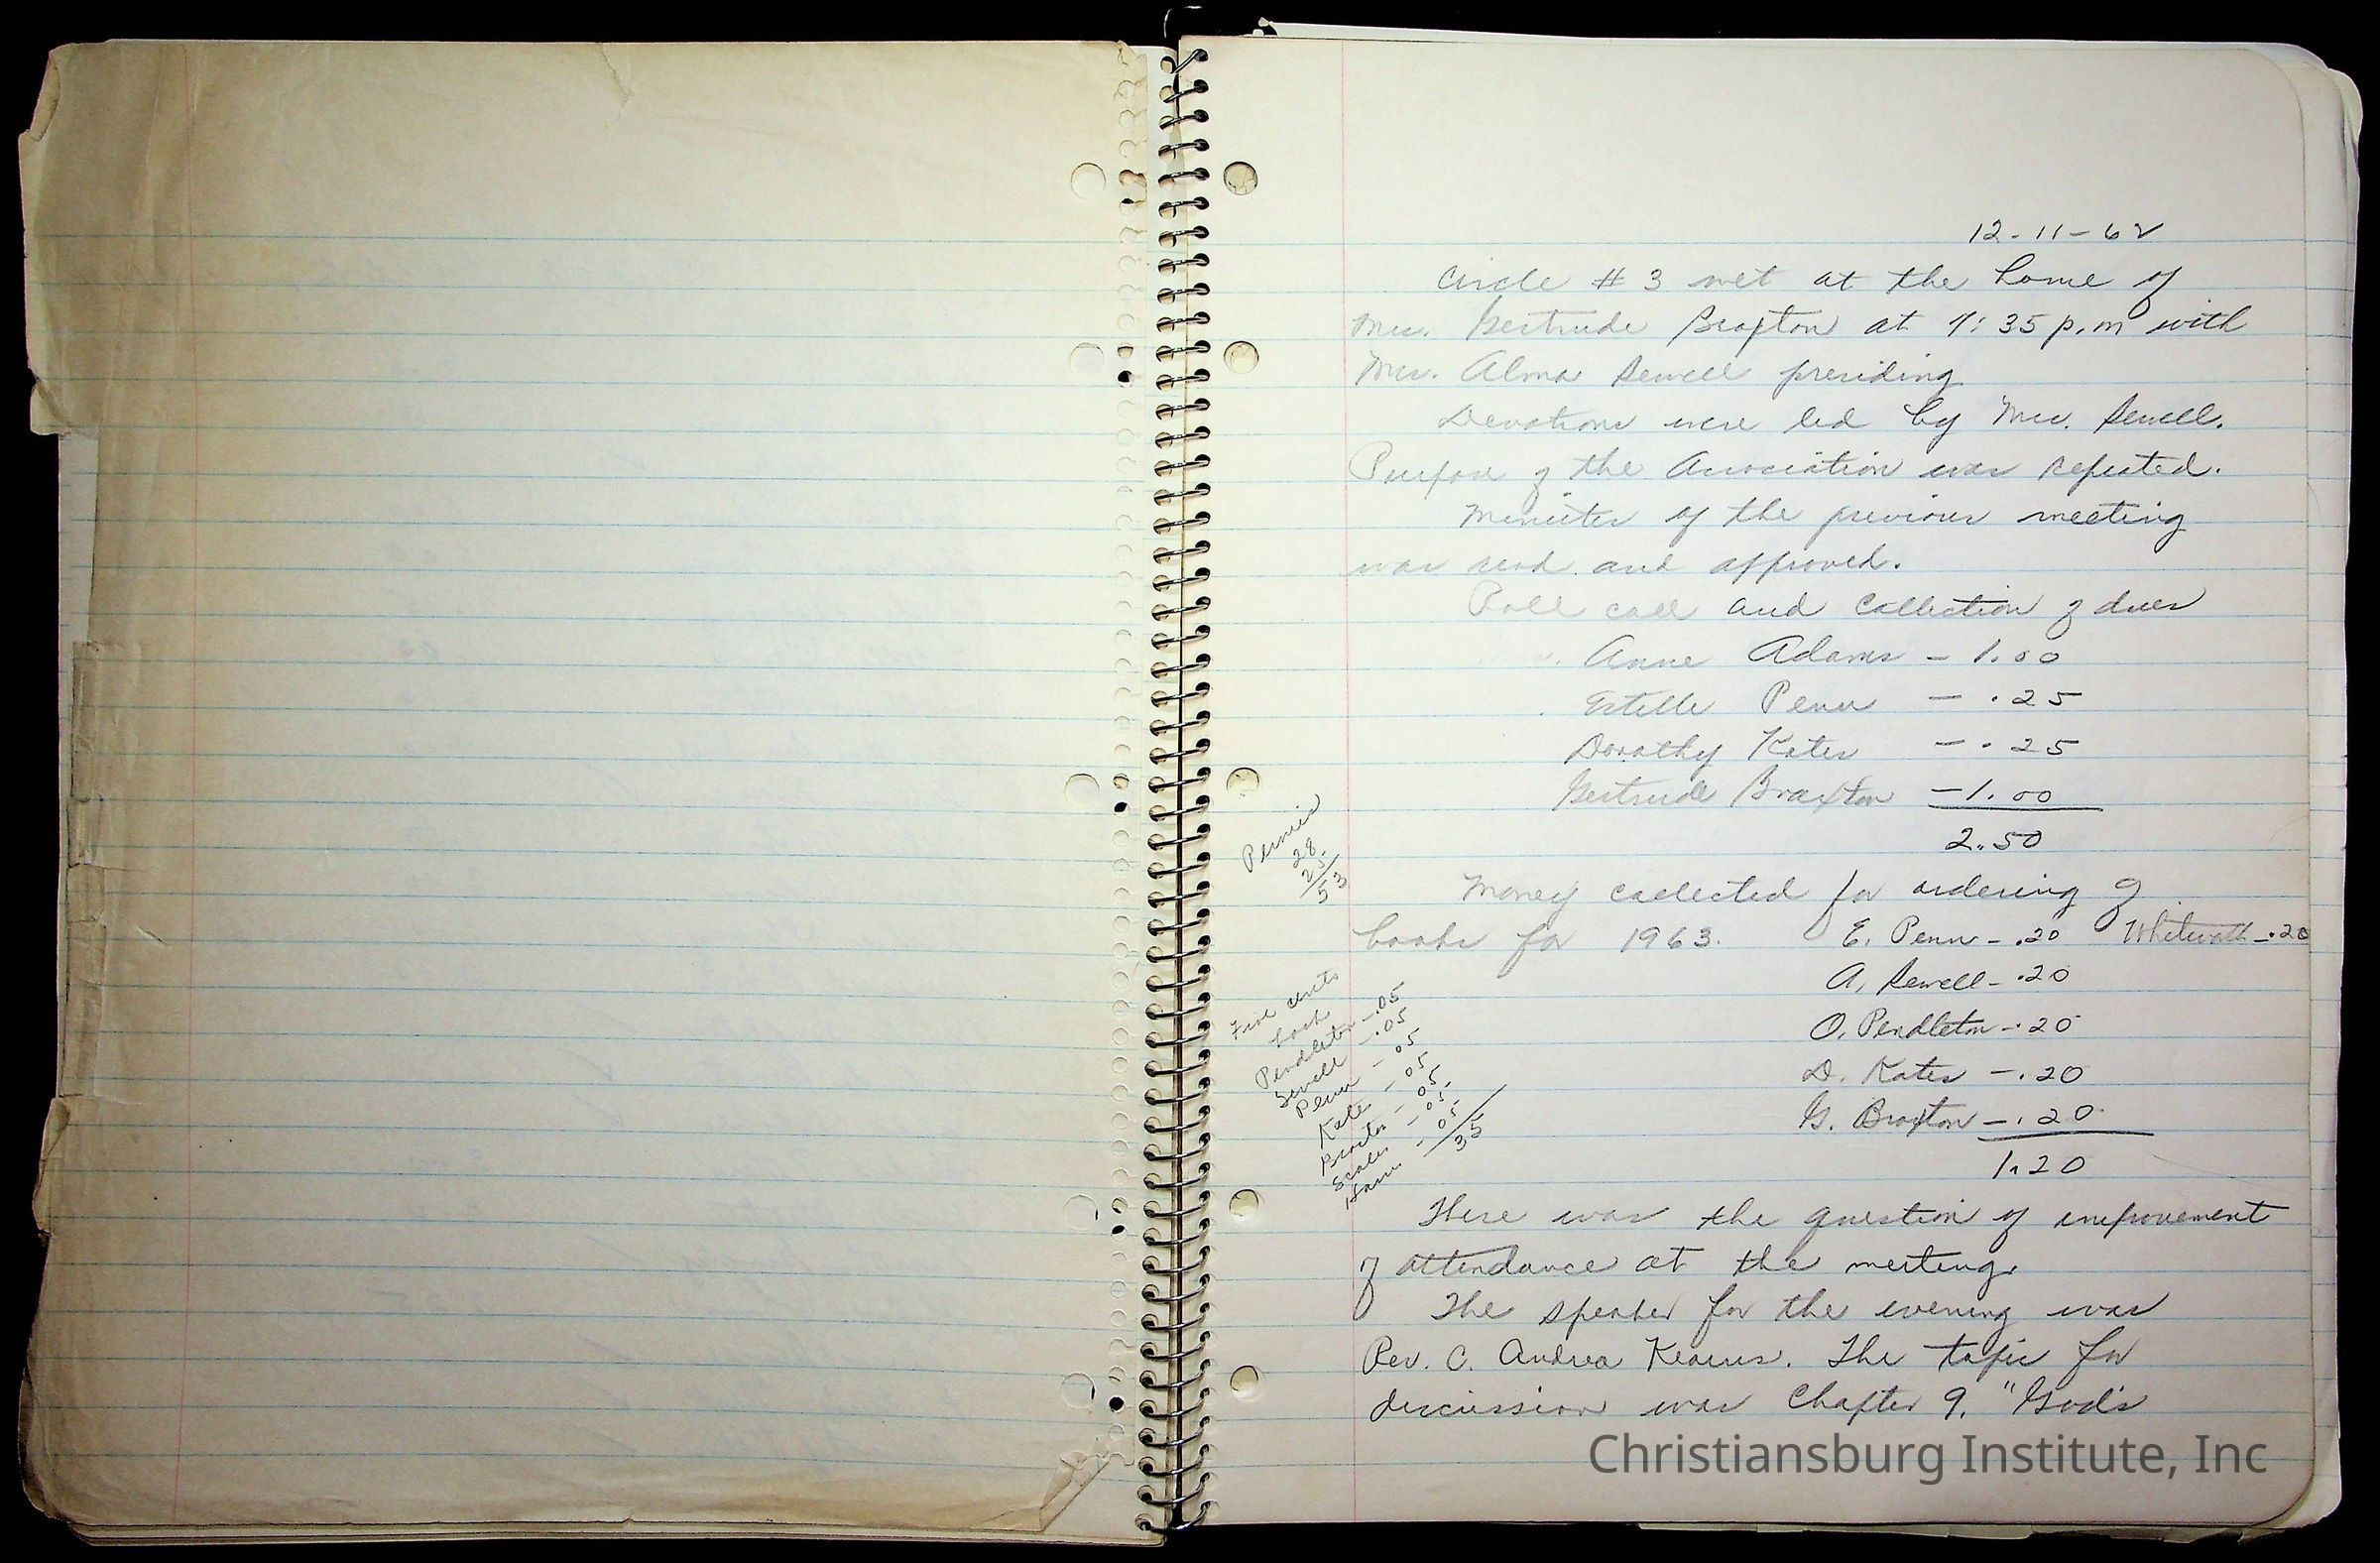 12-11-62
Circle # 3 met at the home of
Mrs. Gertrude Braxton at 7:35 p.m with
Mrs. Alma Sewell presiding
Devotions were led by Mrs. Sewell.
Purpose of the Association was repeated.
Minutes of the previous meeting
was read and approved.
Roll call and Collection of dues
Anne Adams - 1.00
Estelle Penn - .25
Dorothy Kates - .25
Gertrude Braxton - 1.00
2.50
Pennies
28
25
53
Money collected for ordering of
books for 1963. E. Penn - .20 Whitworth - .20
A. Sewell - .20
O. Pendleton - .20
D. Kates - .20
G. Braxton - .20
1.20
Five cents
book
Pendleton - .05
Sewell - .05
Penn - 05
Kates - 05
Braxton - 05.
Scales - 05.
- 05.
35
There was the question of improvement
of attendance at the meeting.
The speaker for the evening was
Rev. C. Andrea Kearns. The topic for
discussion was Chapter 9. "God's
Christiansburg Institute, Inc